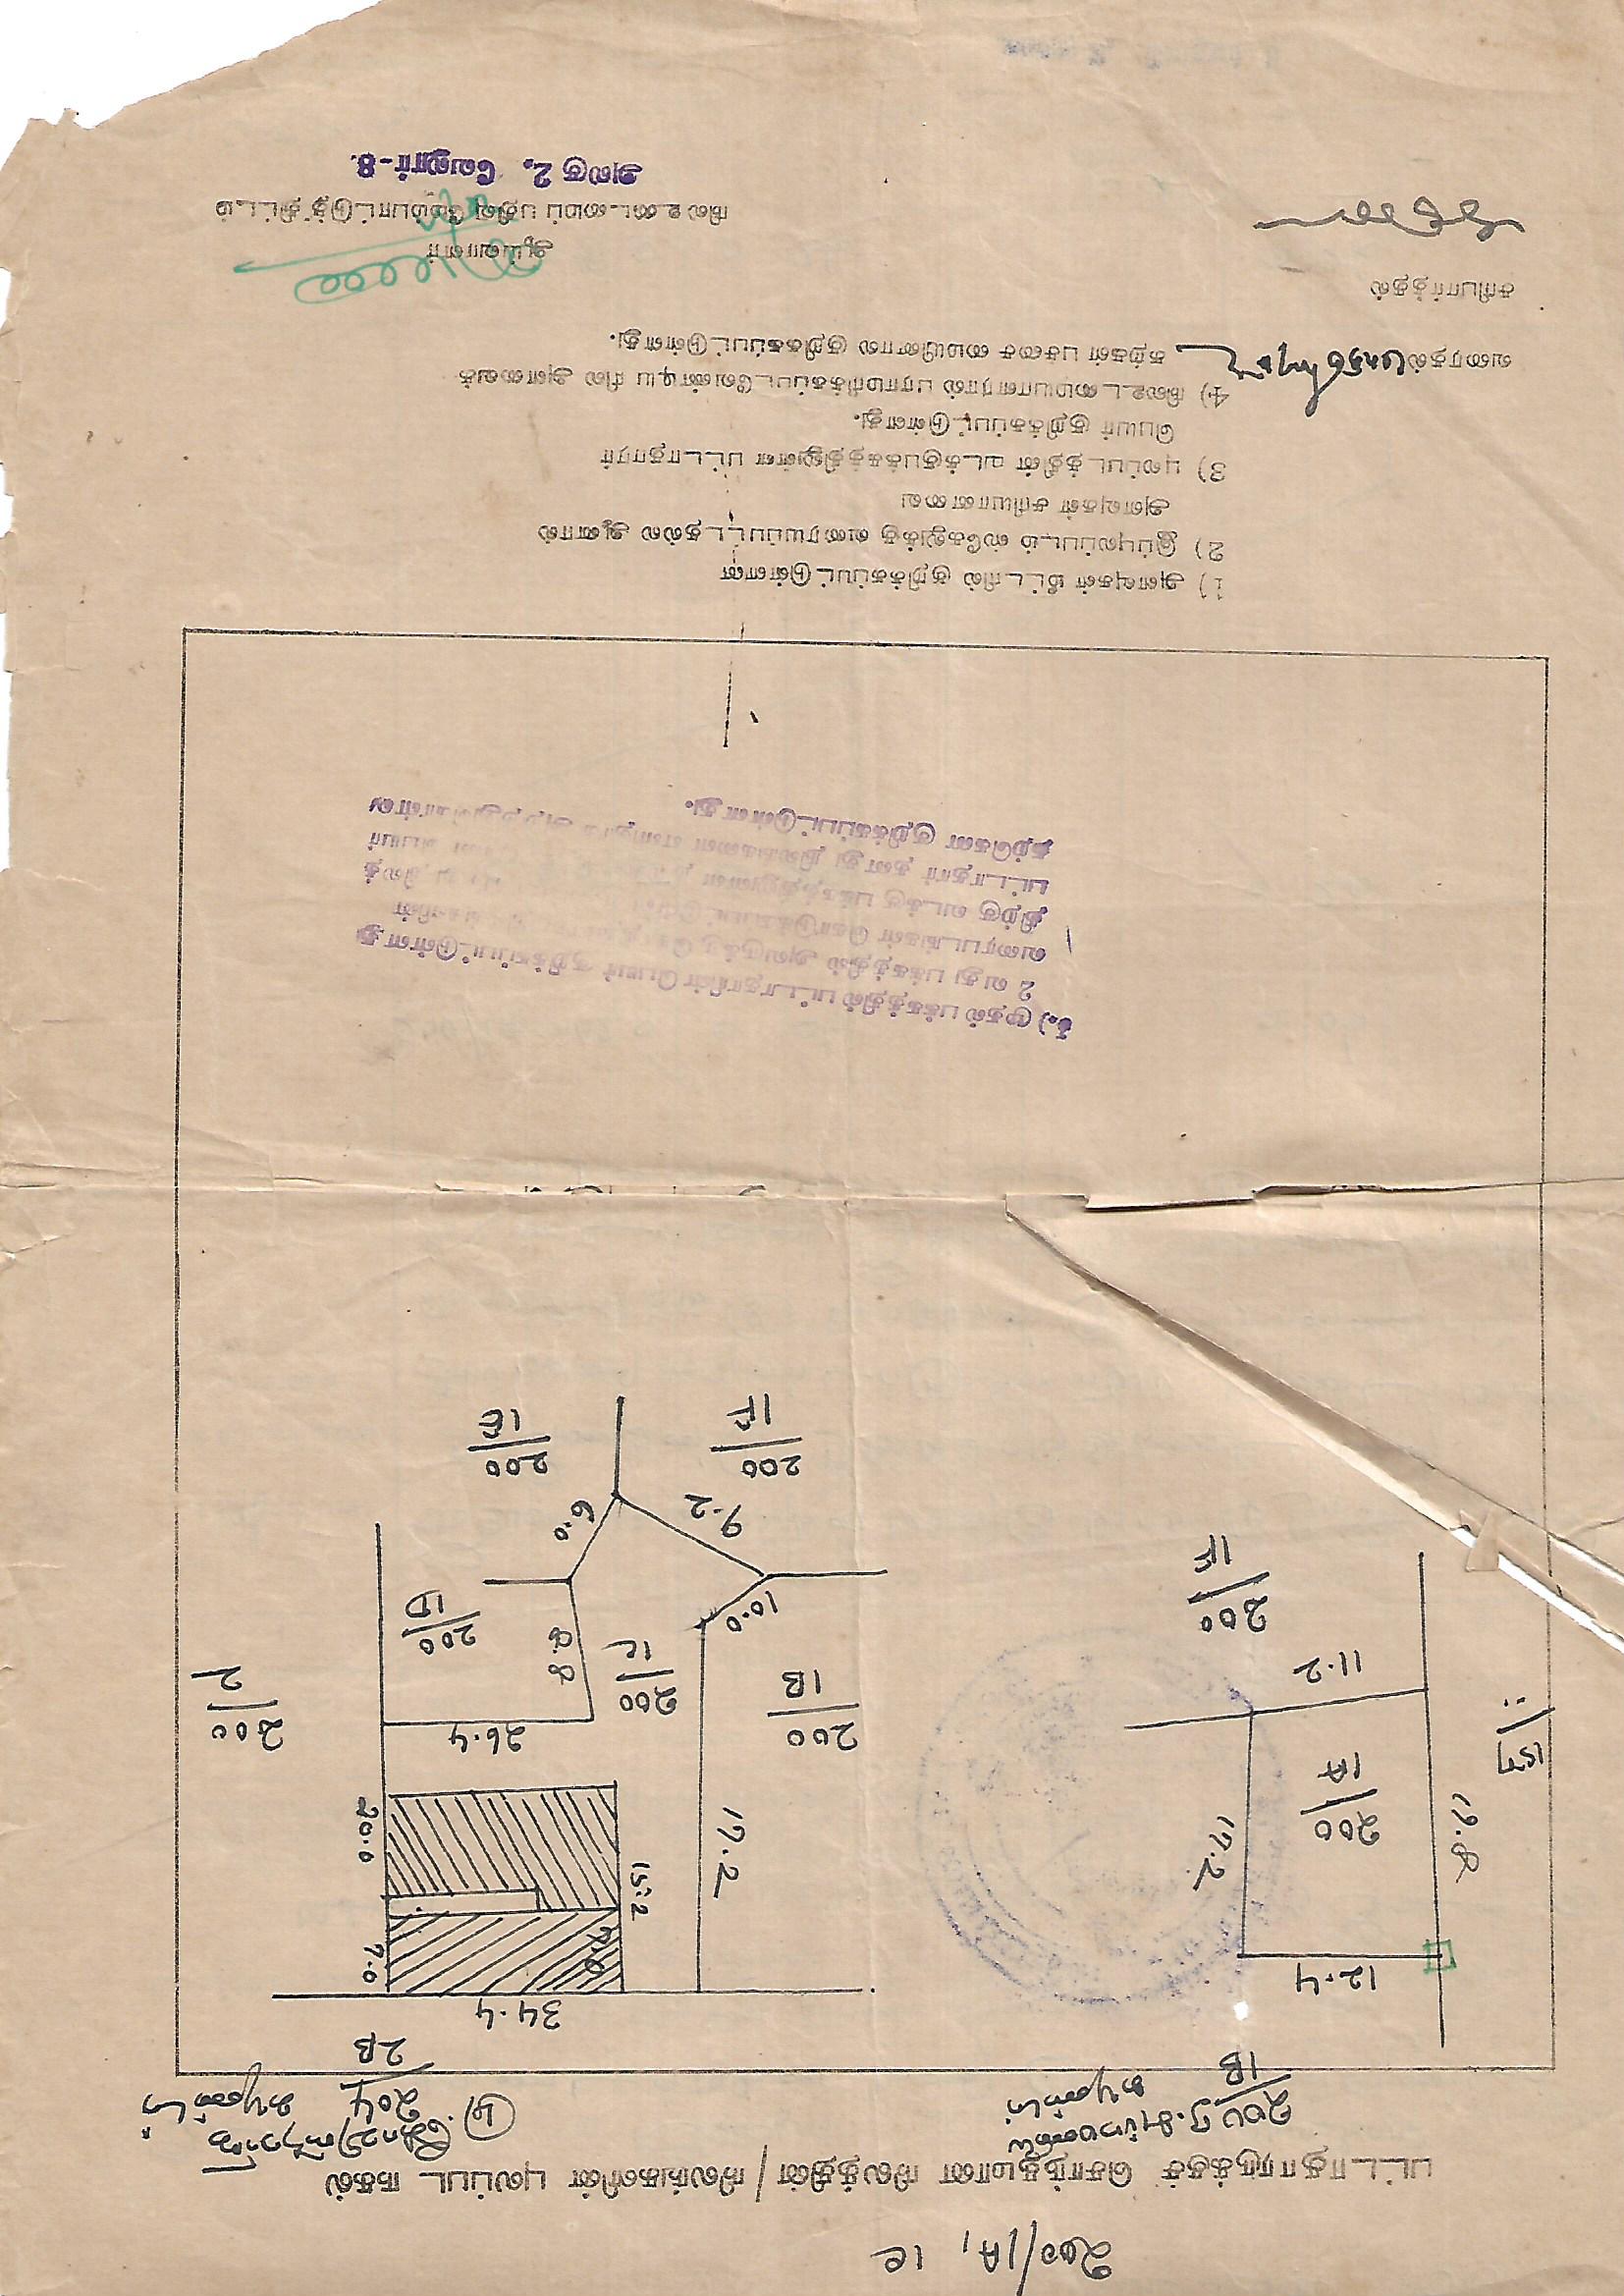 200/1A, 1C
பட்டாதாரருக்குச் சொந்தமான நிலத்தின் / நிலங்களின் புலப்பட நகல்
200 ர.சுப்ரமணிய
1B கவுண்டர்
மு. கோவிந்தராஜ
204 கவுண்டர்
2B
34.4
12.4
7.0
19.8
17.2
200
1A
157
11.2
200
1F
17.2
15.2
20.0
200
1B
200
1C
26.4
8.8
200
1D
200
2
10.0
9.2
6.0
200
1F
200
1E
5.) முதல் பக்கத்தில் பட்டாதாரின் பெயர் குறிக்கப்பட்டுள்ளது
2 வது பக்கத்தில் அவருக்கு
வரைபடங்கள் கொடுக்கப்பட்டுள்ள
திற்கு வடக்கு பக்கத்திலுள்ள நிலத்
பட்டாதார் தனது நிலங்களை எளிதாக அறிந்துகொள்வ
தற்கென குறிக்கப்பட்டுள்ளது.
1) அளவுகள் மீட்டரில் குறிக்கப்பட்டுள்ளன
2) இப்புலப்படம் ஸ்கேலுக்கு வரையப்பட்டதல்ல ஆனால்
அளவுகள் சரியானவை
3) புலப்படத்தின் வடக்குபக்கத்திலுள்ள பட்டாதாரர்
பெயர் குறிக்கப்பட்டுள்ளது.
4) நிலஉடமையாளரால் பராமரிக்கப்படவேண்டிய நில அளவைக்
வரைதல் கற்கள் பச்சை மையினால் குறிக்கப்பட்டுள்ளது.
சரிபார்த்தல்
ஆய்வாளர்
நில உடைமைப் பதிவு மேம்பாட்டுத் திட்டம்
அலகு 2. வேலூர்-8.